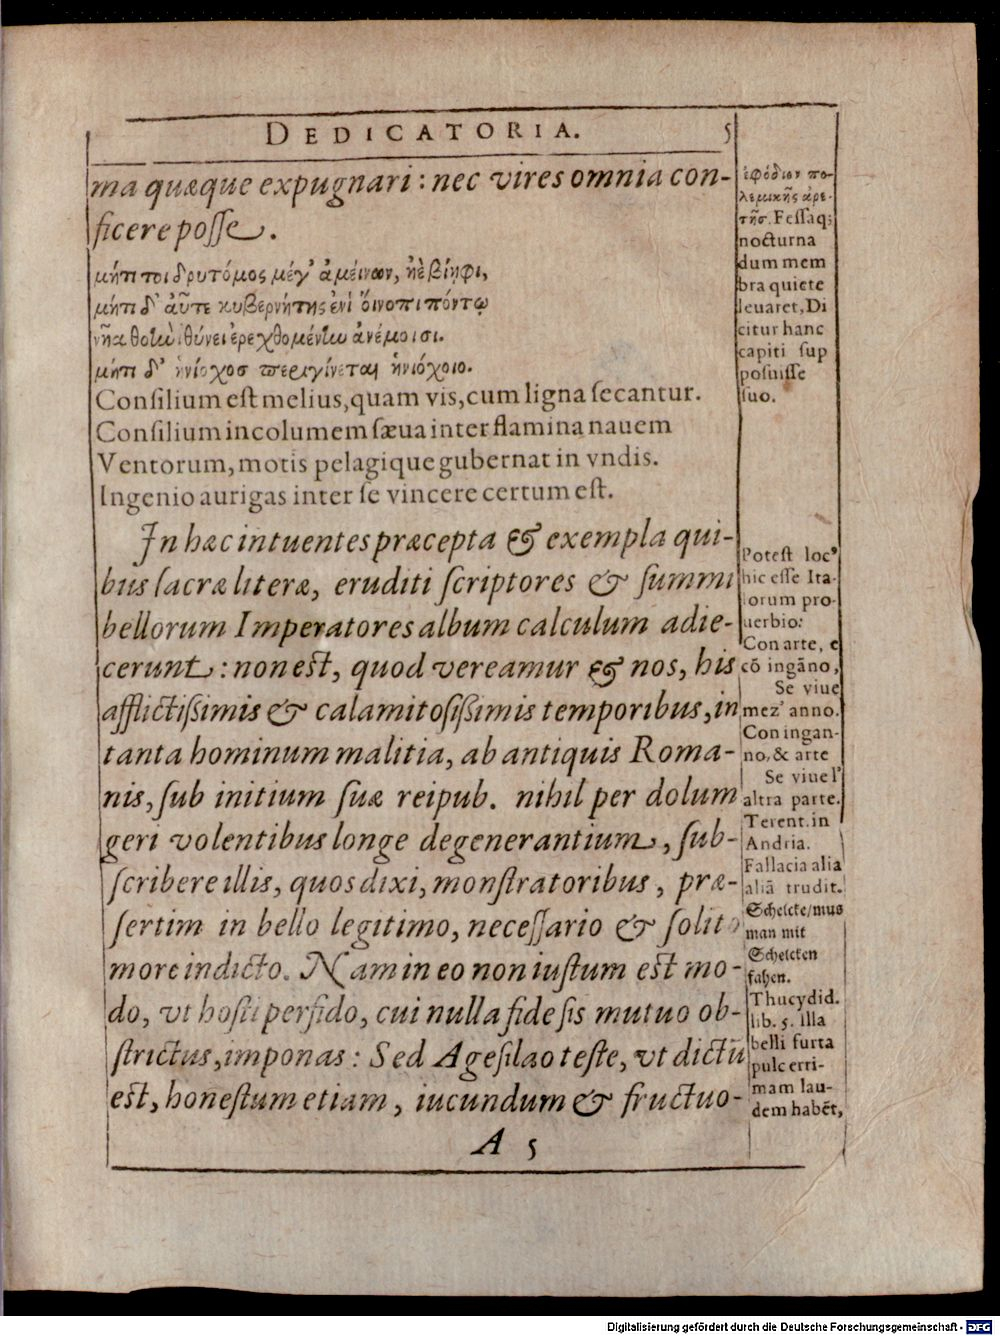 DEDICATORIA. 5
ma quæque expugnari: nec vires omnia con-
ficere posse.
μήτι τοι δρυτόμος μέγ' ἀμείνων, ἠὲ βίηφι,
μήτι δ' αὖτε κυβερνήτης ἐνὶ ὄινοπι πόντῳ
νῆα θοὴν ἰθύνει ἐρεχθομένην ἀνέμοισι.
μήτι δ' ἡνίοχοσ περιγίνεται ἡνιόχοιο.
Consilium est melius, quam vis, cum ligna secantur.
Consilium incolumem sæua inter flamina nauem
Ventorum, motis pelagique gubernat in vndis.
Ingenio aurigas inter se vincere certum est.
In hæc intuentes præcepta & exempla qui-
bus sacræ literæ, eruditi scriptores & summi
bellorum Imperatores album calculum adie-
cerunt: non est, quod vereamur & nos, his
afflictißimis & calamitosißimis temporibus, in
tanta hominum malitia, ab antiquis Roma-
nis, sub initium suæ reipub. nihil per dolum
geri volentibus longe degenerantium, sub-
scribere illis, quos dixi, monstratoribus, præ-
sertim in bello legitimo, necessario & solito
more indicto. Nam in eo non iustum est mo-
do, vt hosti perfido, cui nulla fide sis mutuo ob-
strictus, imponas: Sed Agesilao teste, vt dictū
est, honestum etiam, iucundum & fructuo-
A 5
ἐφόδιον πο-
λεμικῆς ἀρε-
τῆσ. Fessaq;
nocturna
dum mem
bra quiete
leuaret, Di
citur hanc
capiti sup
posuisse
suo.
Potest loc⁹
hic esse Ita-
lorum pro-
uerbio:
Con arte, e
cō ingāno,
Se viue
mez' anno.
Con ingan-
no, & arte
Se viue l'
altra parte.
Terent. in
Andria.
Fallacia alia
aliā trudit.
Schelcke/mus
man mit
Schelcken
fahen.
Thucydid.
lib. 5. illa
belli furta
pulcerri-
mam lau-
dem habēt,
Digitalisierung gefördert durch die Deutsche Forschungsgemeinschaft - DFG